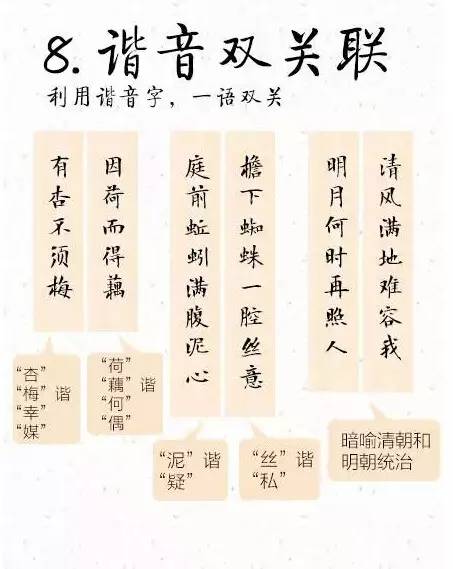 8.谐音双关联
利用谐音字，一语双关
清风满地难容我
明月何时再照人
暗喻清朝和
明朝统治
檐下蜘蛛一腔丝意
庭前蚯蚓满腹泥心
“丝”谐
“私”
“泥”谐
“疑”
因荷而得藕
有杏不须梅
“荷”
“藕”谐
“何”
“偶”
“杏”
“梅”谐
“幸”
“媒”